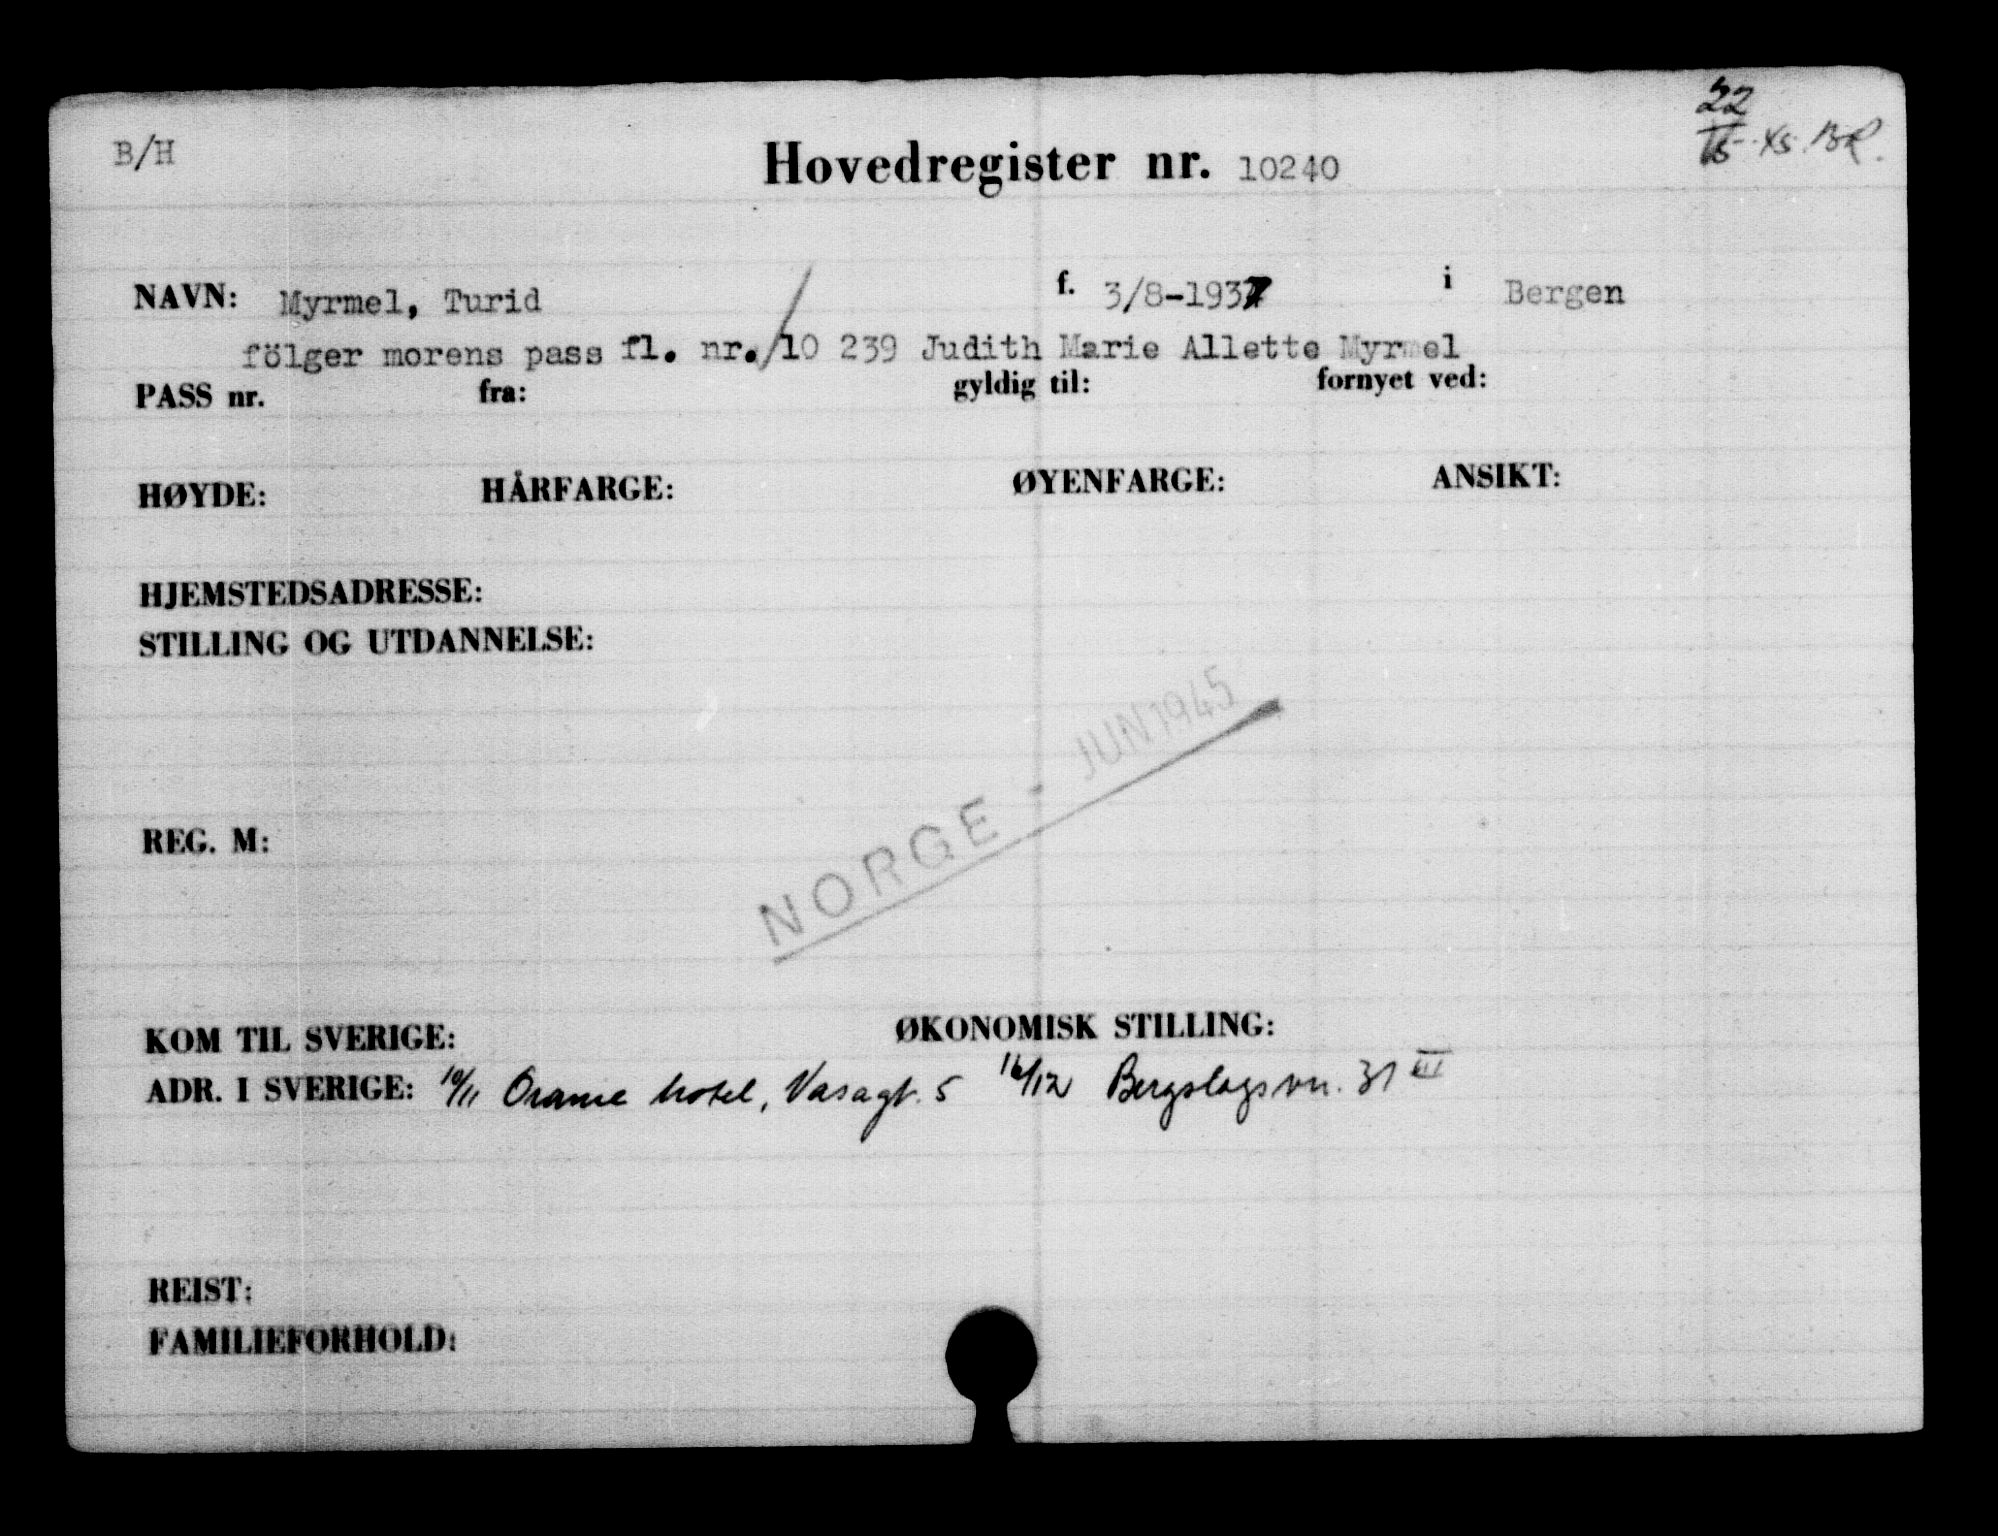 22
B/H
Hovedregister nr. 10240
NAVN: Myrmel, Turid f. 3/8-1937 i Bergen
fölger morens pass fl. nr. 10 239 Judith Marie Allette Myrmel
PASS nr. fra: gyldig til: fornyet ved:
HØYDE: HÅRFARGE: ØYENFARGE: ANSIKT:
HJEMSTEDSADRESSE:
STILLING OG UTDANNELSE:
NORGE - JUN 1945
REG. M:
KOM TIL SVERIGE: ØKONOMISK STILLING:
ADR. I SVERIGE: 10/11 hotel, Vasagt. 5 16/12 Bergslagsvn. 31 III
REIST:
FAMILIEFORHOLD: